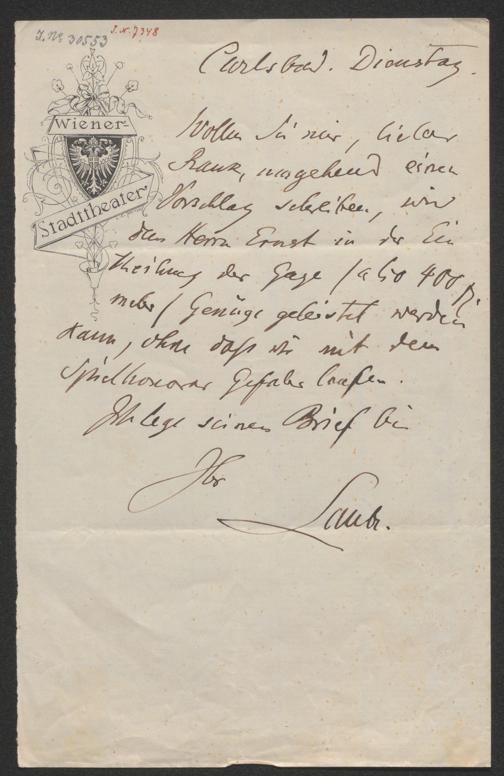 J. N. 30553
J. N. 7348
Wiener-
Stadttheater
Carlsbad. Dienstag.
Wollen Sie mir, lieber
Franz, umgehend einen
Vorschlag schreiben, wie
dem Herrn Ernst in der Ein
theilung der Gage / also 400 fl.
mehr / Genüge geleistet werden
kann, ohne daß wir mit dem
Spielhonorar Gefahr laufen.
Ich lege seinen Brief bei
Ihr
Laube.